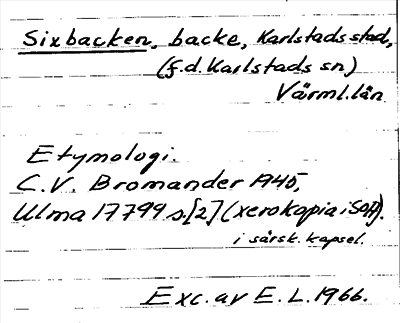 Sixbacken, backe, Karlstads stad,
(f.d. Karlstads sn)
Värml. län
Etymologi.
C.V. Bromander 1945,
Ulma 17799 s.[2] (xerokopia i SOA).
i särsk. kapsel.
Exc. av E. L. 1966.